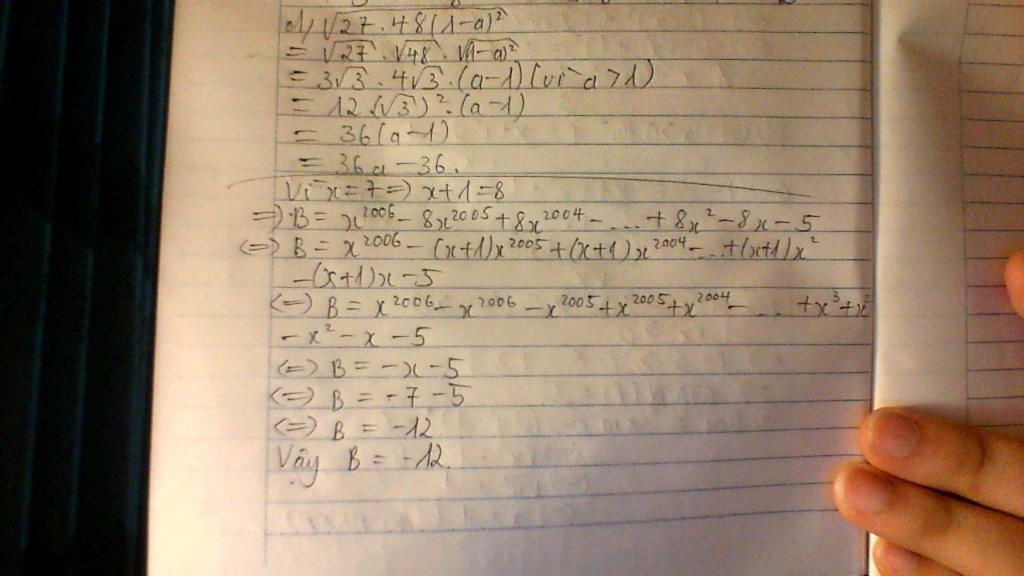 d) √27.48(1-a)²
= √27 . √48 . √(1-a)²
= 3√3 . 4√3 . (a-1) (vì a>1)
= 12.(√3)².(a-1)
= 36(a-1)
= 36a - 36.
Vì x=7 => x+1=8
=> B = x²⁰⁰⁶ - 8x²⁰⁰⁵ + 8x²⁰⁰⁴ - ... + 8x² - 8x - 5
<=> B = x²⁰⁰⁶ - (x+1)x²⁰⁰⁵ + (x+1)x²⁰⁰⁴ - ... + (x+1)x²
- (x+1)x - 5
<=> B = x²⁰⁰⁶ - x²⁰⁰⁶ - x²⁰⁰⁵ + x²⁰⁰⁵ + x²⁰⁰⁴ - ... + x³ + x²
- x² - x - 5
<=> B = -x - 5
<=> B = -7 - 5
<=> B = -12
Vậy B = -12.